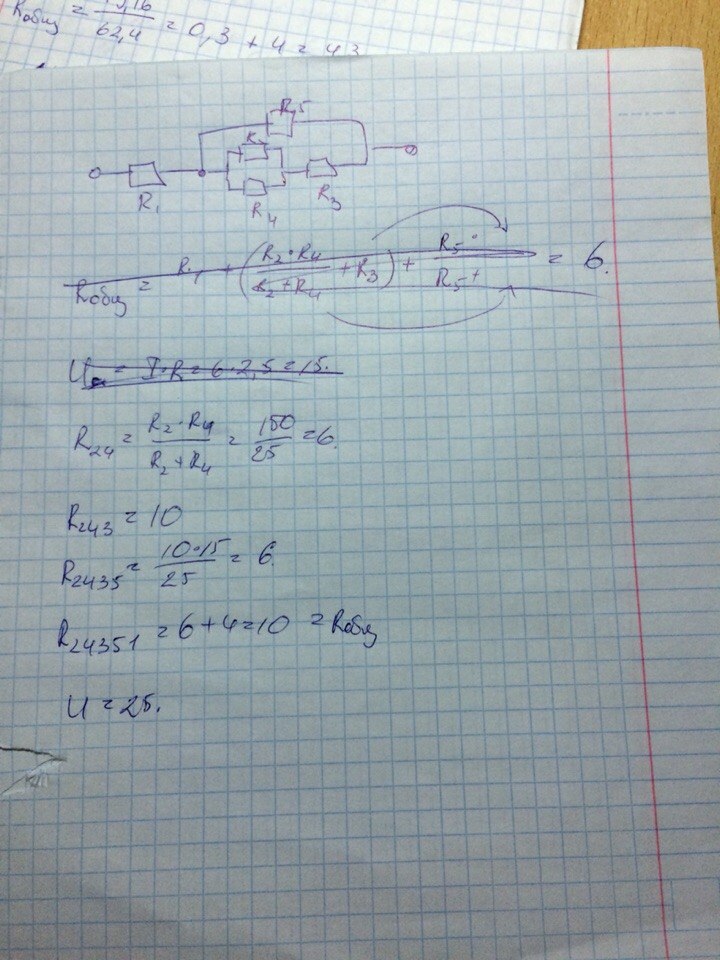 Rобщ = 15,16 / 62,4 = 0,3 + 4 = 43
R5
R2
R1
R4
R3
Rобщ = R1 + (R2·R4 / R2+R4 + R3) + R5· / R5+ = 6.
U = I·R = 6·2,5 = 15.
R24 = R2·R4 / R2+R4 = 150 / 25 = 6.
R243 = 10
R2435 = 10·15 / 25 = 6
R24351 = 6+4=10 = Rобщ
U = 25.